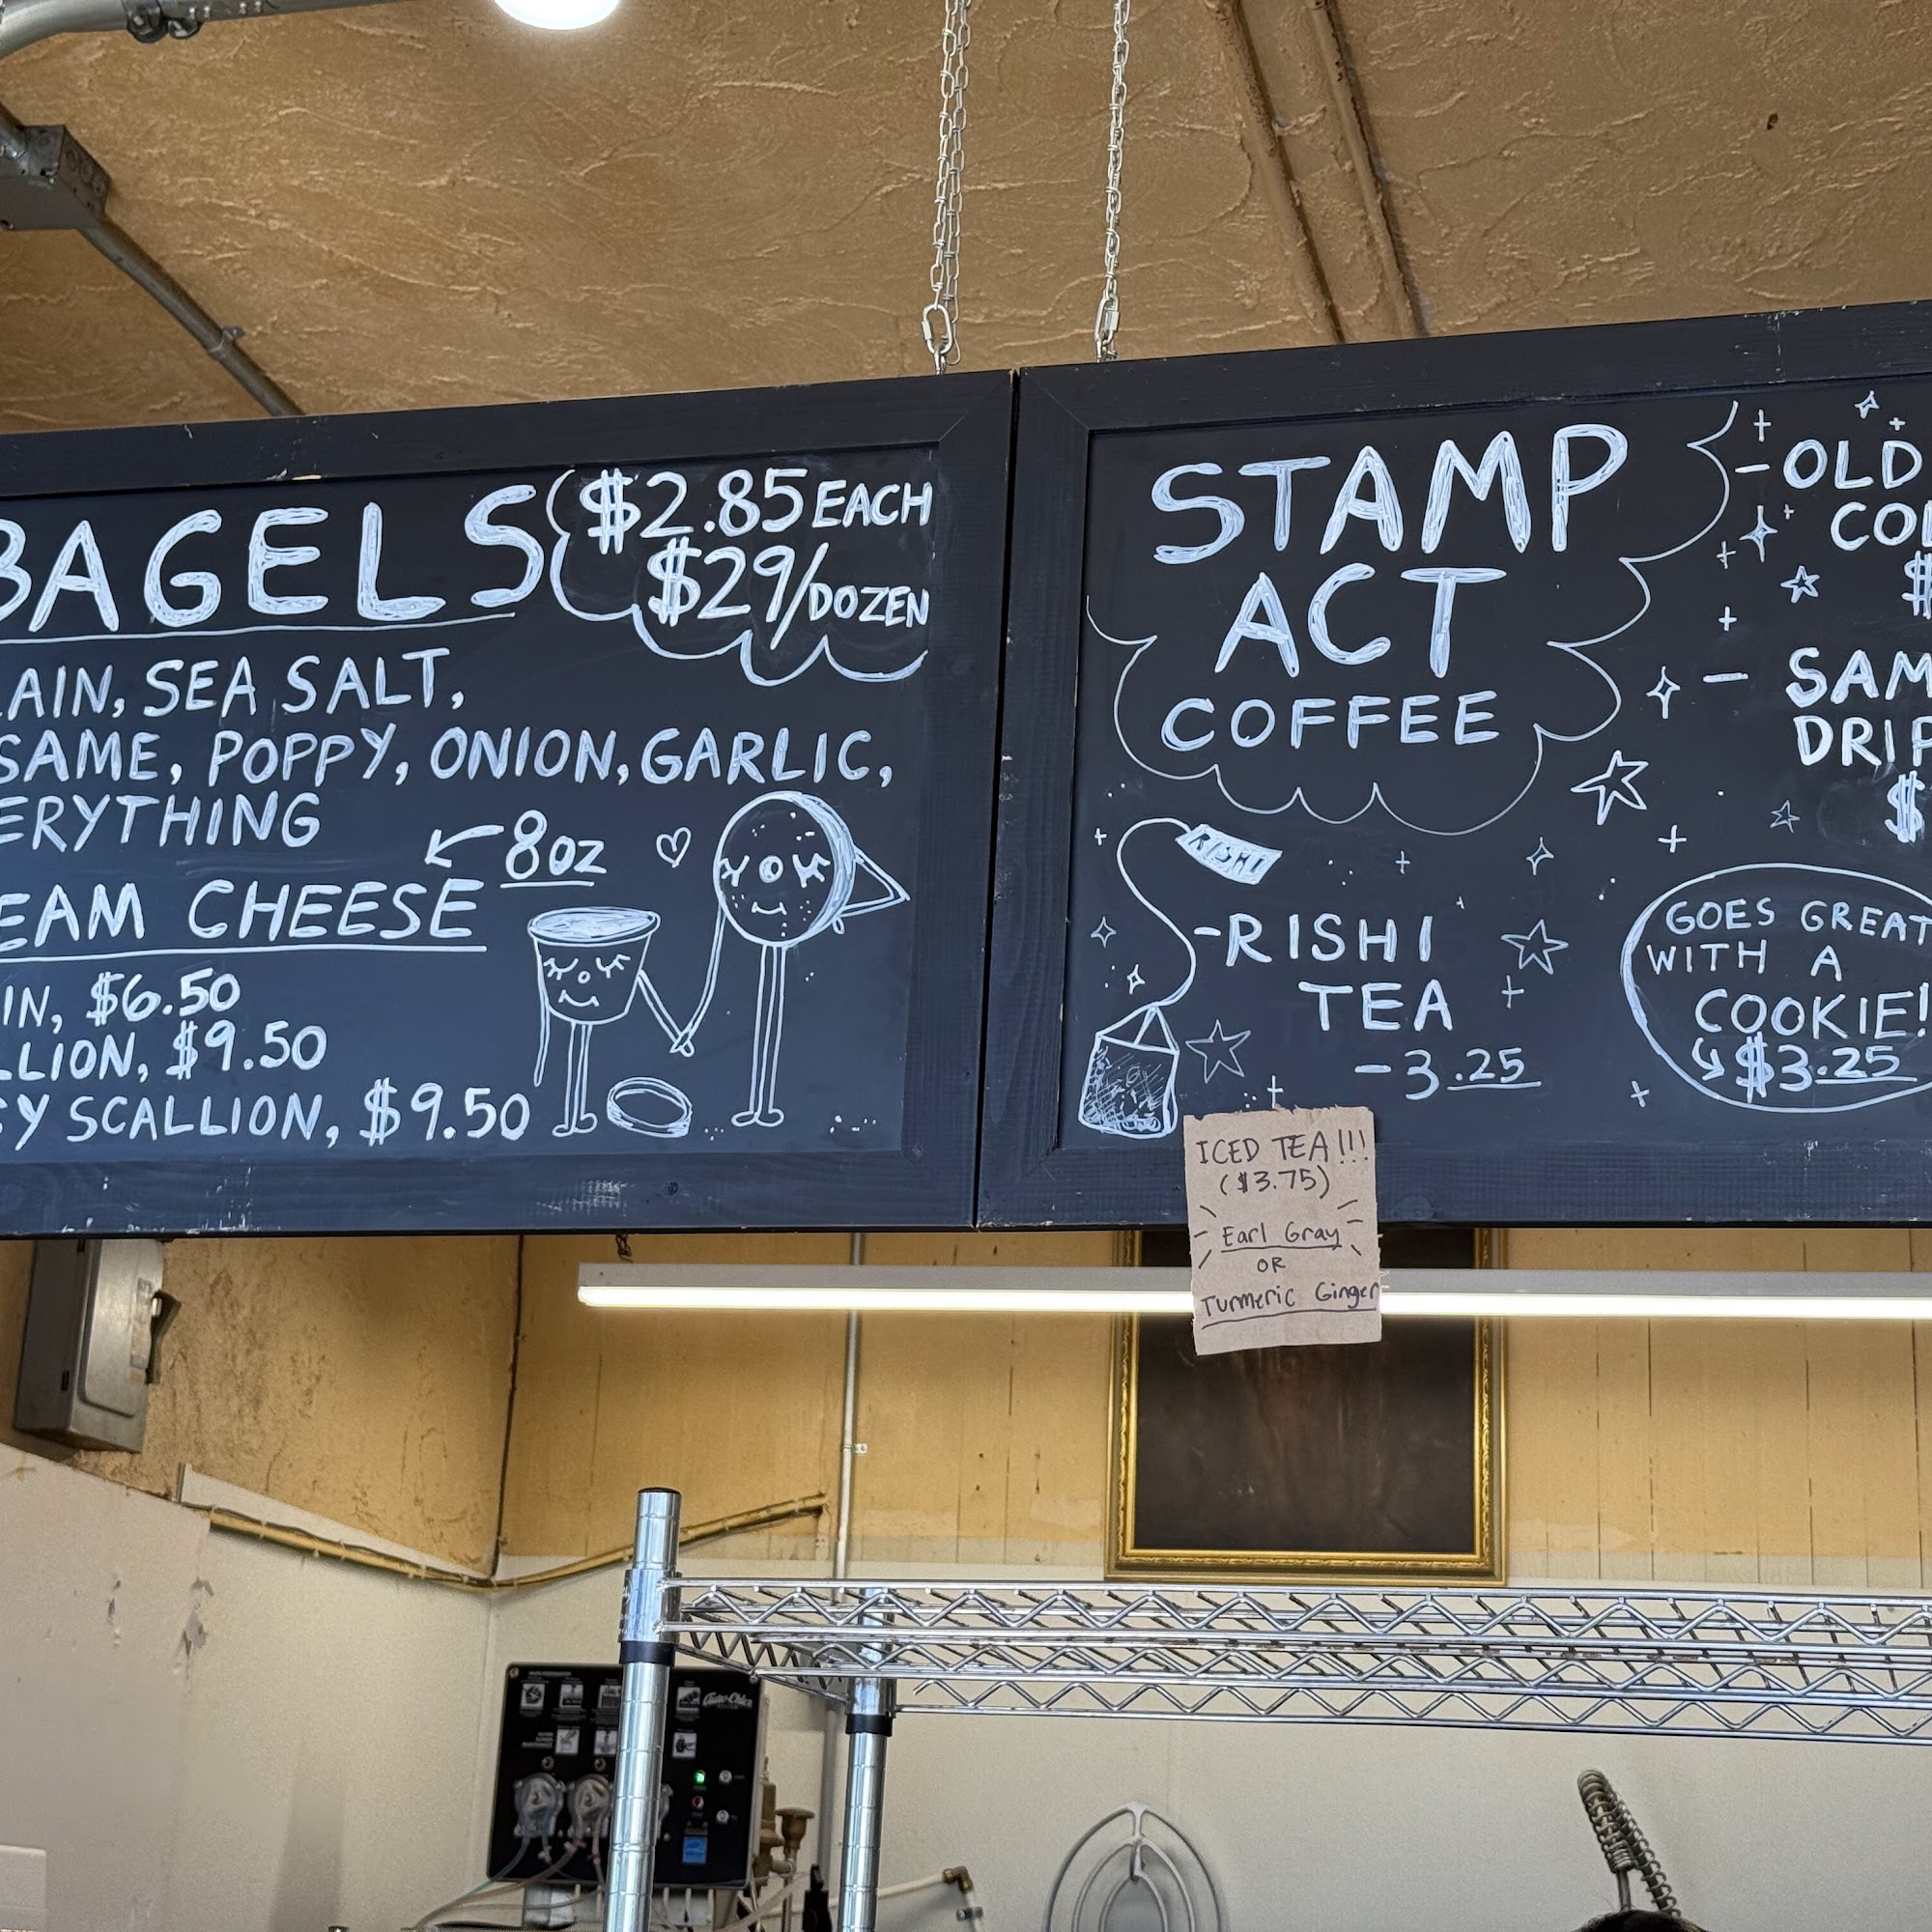 BAGELS
$2.85 EACH
$29/DOZEN
AIN, SEA SALT,
SAME, POPPY, ONION, GARLIC,
ERYTHING
8oz
EAM CHEESE
IN, $6.50
LLION, $9.50
Y SCALLION, $9.50
STAMP
ACT
COFFEE
RISHI
-RISHI
TEA
-3.25
-OLD
CO
$
- SAM
DRIP
$
GOES GREAT
WITH A
COOKIE!
$3.25
ICED TEA!!!
($3.75)
Earl Gray
OR
Turmeric Ginger
Auto-Chlor